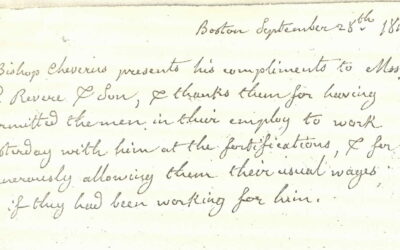 Boston September 28th 18
Bishop Cheverus presents his compliments to Mess
Revere & Son, & thanks them for having
rmitted the men in their employ to work
sterday with him at the fortifications, & for
nerously allowing them their usual wages
if they had been working for him.